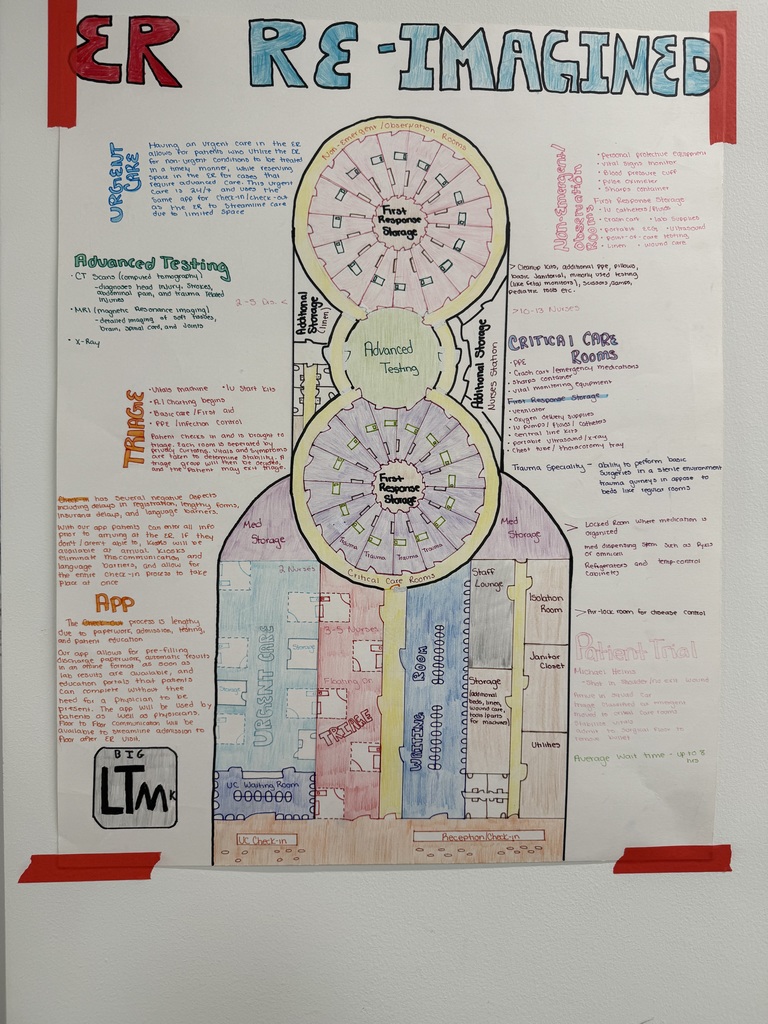 ER RE-IMAGINED
URGENT CARE
Having an urgent care in the ER
allows for patients who utilize the ER
for non-urgent conditions to be treated
in a timely manner, while reserving
space in the ER for cases that
require advanced care. This urgent
care is 24/7 and uses the
same app for check-in/check-out
as the ER to streamline care
due to limited space
Advanced Testing
• CT Scans (computed tomography)
-diagnoses head injury, strokes,
abdominal pain, and trauma related
injuries
• MRI (magnetic Resonance imaging)
- detailed imaging of soft tissues,
brain, spinal cord, and joints
• X-Ray
TRIAGE
• Vitals machine • IV Start kits
• R.I Charting begins
• Basic care / First aid
• PPE / infection control
Patient checks in and is brought to
triage. Each room is seperated by
privacy curtains. Vitals and symptoms
are taken to determine stability. A
triage group will then be decided,
and the patient may exit triage.
has several negative aspects
including delays in registration, lengthy forms,
insurance delays, and language barriers.
With our app patients can enter all info
prior to arriving at the ER. If they
don't / aren't able to, kiosks will be
available at arrival. Kiosks
eliminate miscommunication and
language barriers, and allow for
the entire check-in process to take
place at once
APP
The process is lengthy
due to paperwork, admission, testing,
and patient education
Our app allows for pre-filling
discharge paperwork, automatic results
in an online format as soon as
lab results are available, and
education portals that patients
can complete without the
need for a physician to be
present. The app will be used by
patients as well as physicians.
Floor to Floor communication will be
available to streamline admission to
floor after ER visit.
BIG
LTMK
Non-Emergent / Observation Rooms
First
Response
Storage
Additional
Storage
(linen)
Advanced
Testing
Additional Storage
Nurses Station
First
Response
Storage
Trauma Trauma Trauma Trauma
Critical Care Rooms
Med
Storage
Med
Storage
2 Nurses
URGENT CARE
3-5 Nurses
Floating Dr.
TRIAGE
WAITING ROOM
Staff
Lounge
Storage
(additional
beds, linen,
wound care,
tools/parts
for machines)
Isolation
Room
Janitor
Closet
Utilities
UC Waiting Room
UC Check-in
Reception/Check-in
Non-Emergent/
Observation
Rooms
• Personal protective Equipment
• Vital signs monitor
• Blood pressure cuff
• Pulse oximeter
• Sharps container
First Response Storage
• IV catheters/fluids
• Crash cart • Lab Supplies
• portable ECG • Ultrasound
• point-of-care testing
• Linen • wound care
> Cleanup kits, additional PPE, pillows,
basic janitorial, minorly used testing
(like fetal monitors), scissors/clamps,
pediatric tools etc.
>10-13 Nurses
CRITICAL CARE
ROOMS
• PPE
• Crash cart / emergency medications
• sharps container
• vital monitoring equipment
First Response Storage
• ventilator
• Oxygen delivery supplies
• IV pumps / fluids / catheters
• central line kits
• portable ultrasound / x-ray
• Chest tube / thoracotomy tray
Trauma Speciality - ability to perform basic
surgeries in a sterile environment
trauma gurneys in oppose to
beds like regular rooms
> Locked Room where medication is
organized
med dispensing item such as Pyxis
or omnicell
Refrigerators and temp-control
cabinets
>Air-lock room for disease control
Patient Trial
Average wait time - up to 8
hrs